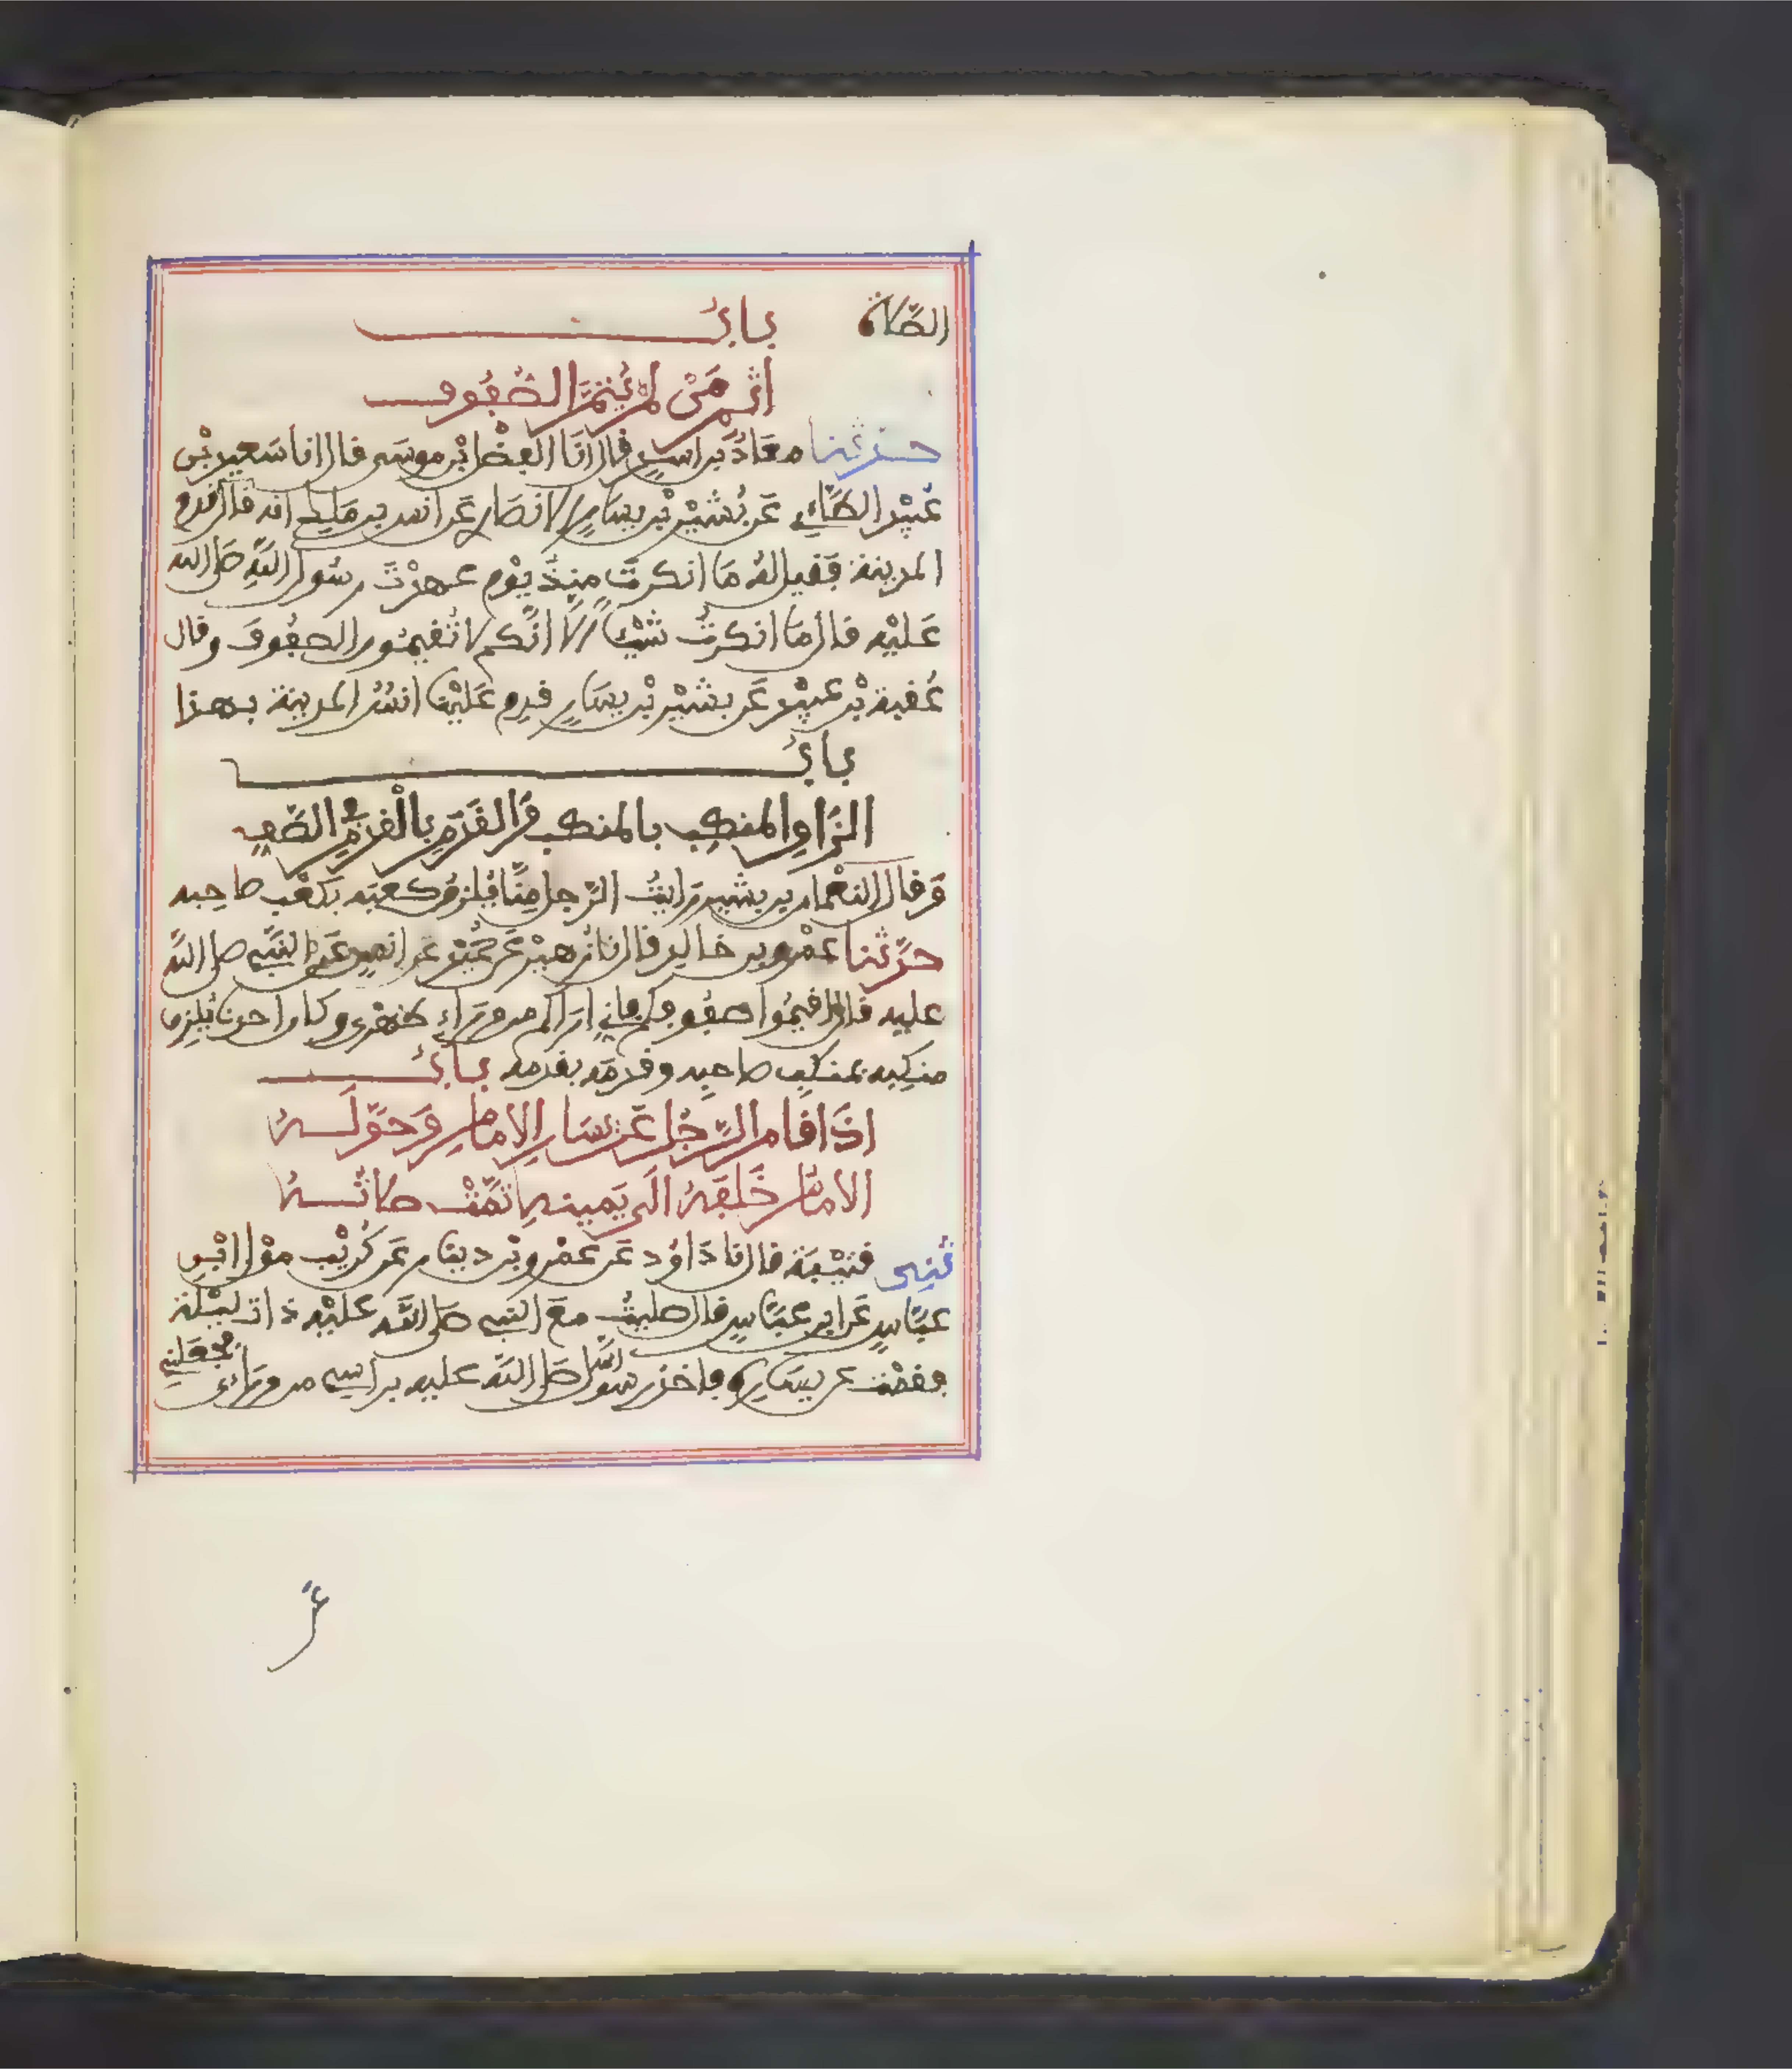 الصَّلاة بابُ
اثم مَنْ لمْ يُتمَّ الصُّفُوف
حدثنا معَاذُ بن اسدٍ قال انَا الفضْل ابْن موسَى قال انا سَعيد بْن
عُبَيْد الطَّائِي عَن بُشَيْر بْن يسَارٍ الانصَارِ عَن انس بن مَلِك انه قال قدم
المدينة فقيل لهُ مَا انكرتَ منِذُ يَوْم عهدْتَ رسُول اللهِ صَلى الله
عَليْه قال مَا انكرتُ شيْئا الا انَّكم لا تُقيمُون الصفُوفَ وقال
عُقبة بْن عبيْدٍ عَن بشَيْر بْن يسَارٍ قدِم عَليْنا انسُ المدينة بهذا
بابُ
الزَاوِ المنكِب بالمنكب وَالقَدَمِ بالْقدَمِ في الصَّفِ
وَقال النعْمان بن بشير رَايتُ الرَّجل مِنَّا يُلزقُ كعبَه بكعْب صاحِبه
حدَّثنا عمْرو بن خالد قال نا زُهيْر عَن حُمَيْد عَن انس عَن النبيِّ صلى الله
عليه قال اقيمُوا صفُوفكم فإني اراكم من ورَاءِ ظهْرى وكان احدنا يُلزِق
منكِبه بمنكِب صاحبِه وقدمَه بقدمه بابُ
اذَا قَام الرَّجُل عَن يسَارِ الامامِ وَحَوَّلَهُ
الامَامُ خَلفَهُ الَى يَمينهِ تمَّتْ صلاتُهُ
ثنِى قتيْبَة قال نا دَاوُد عَن عمْرو بْن دينار عَن كُريْب موْلَى ابْنِ
عبَّاسٍ عَن ابن عبَّاسٍ قال صليتُ معَ النبيِّ صَلى الله عليْه ذات ليْلة
فقمْت عن يسَارِه فاخذ رسُول الله صَلى الله عليه براسِي من ورَاءى فجعَلنِي